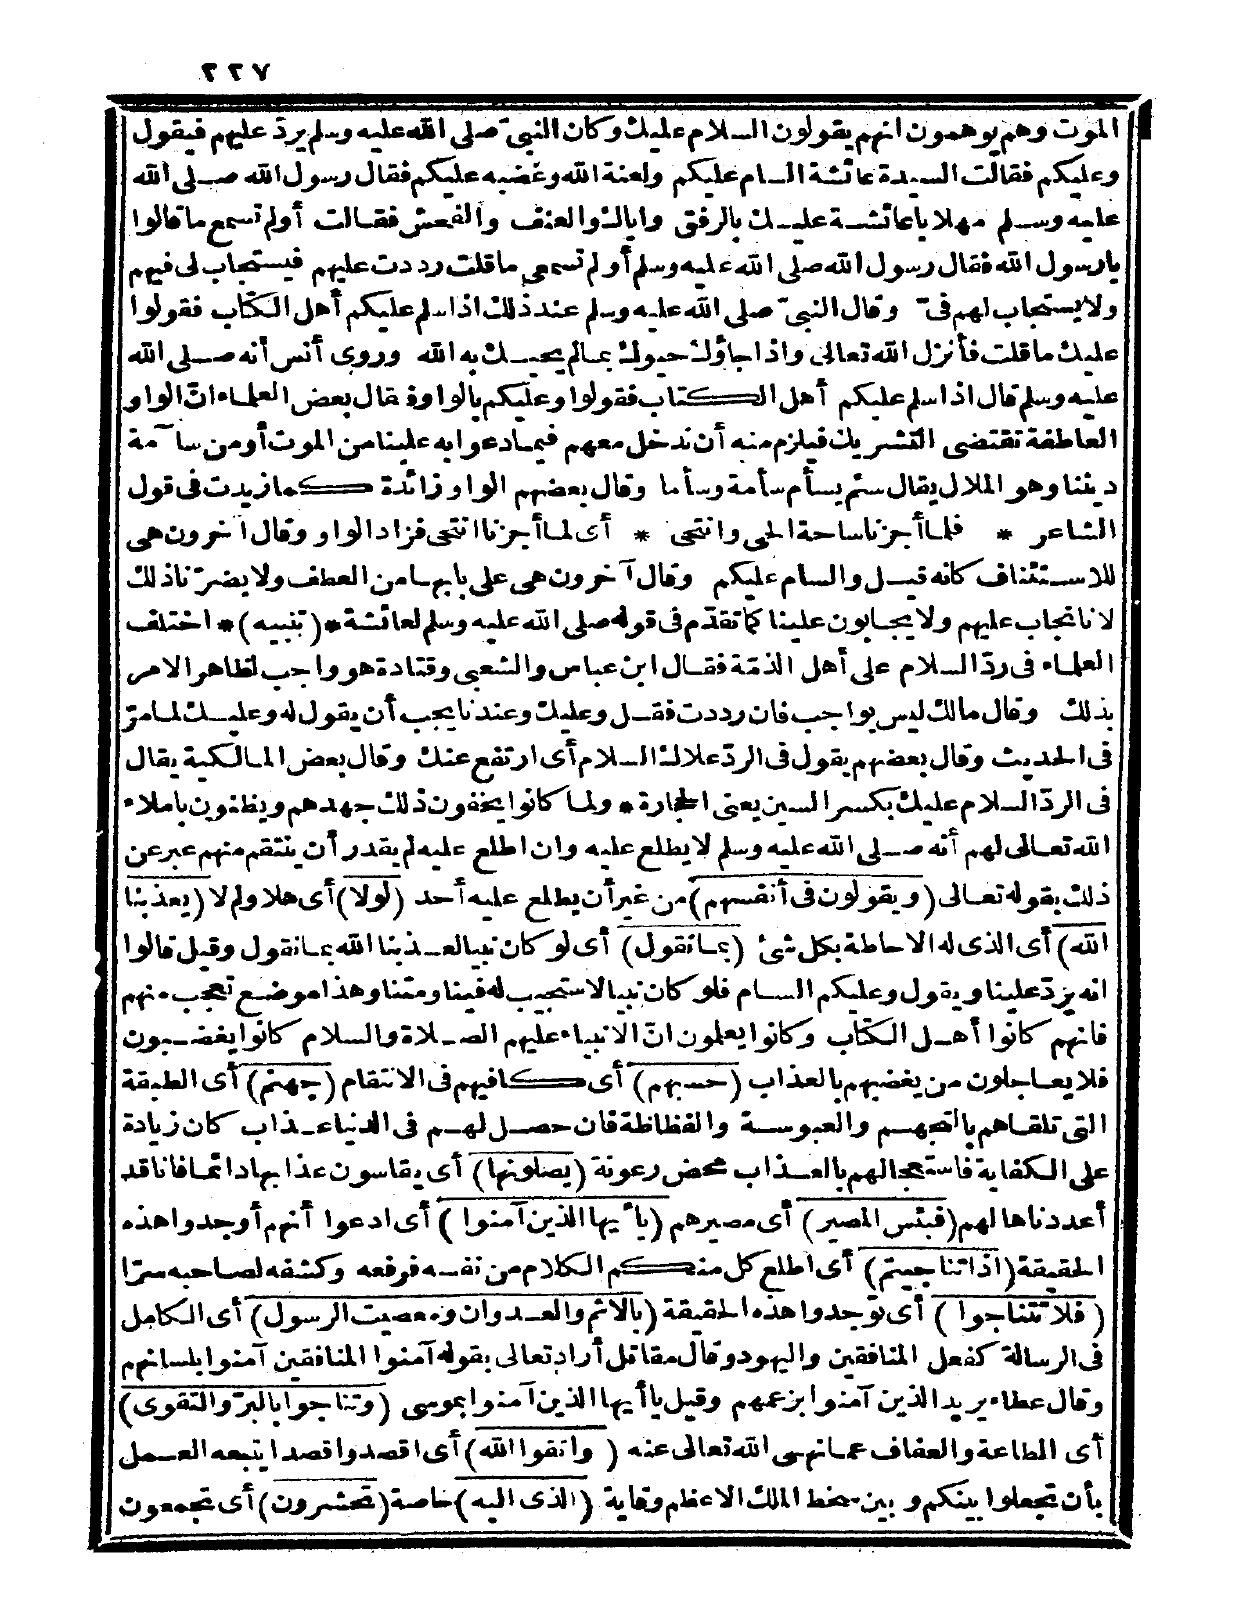 ٢٢٧
الموت وهم يوهمون انهم يقولون السلام عليك وكان النبيّ صلى الله عليه وسلم يردّ عليهم فيقول
وعليكم فقالت السيدة عائشة السام عليكم ولعنة الله وغضبه عليكم فقال رسول الله صلى الله
عليه وسلم مهلا ياعائشة عليك بالرفق واياك والعنف والفحش فقالت أولم تسمع ما قالوا
يارسول الله فقال رسول الله صلى الله عليه وسلم أولم تسمعى ما قلت رددت عليهم فيستجاب لى فيهم
ولا يستجاب لهم فىّ وقال النبىّ صلى الله عليه وسلم عند ذلك اذا سلم عليكم أهل الكتاب فقولوا
عليك ما قلت فأنزل الله تعالى واذا جاؤك حيوك بما لم يحيك به الله وروى أنس أنه صلى الله
عليه وسلم قال اذا سلم عليكم أهل الكتاب فقولوا وعليكم بالواو فقال بعض العلماء انّ الواو
العاطفة تقتضى التشريك فيلزم منه أن ندخل معهم فيما دعوا به علينا من الموت أو من سآمة
ديننا وهو الملال يقال سئم يسأم سأمة وسأما وقال بعضهم الواو زائدة كما زيدت فى قول
الشاعر * فلما أجزنا ساحة الحى وانتحى * أى لما أجزنا انتحى فزاد الواو وقال آخرون هى
للاستئناف كانه قيل والسام عليكم وقال آخرون هى على بابها من العطف ولا يضرّنا ذلك
لانا نجاب عليهم ولا يجابون علينا كما تقدّم فى قوله صلى الله عليه وسلم لعائشة *(تنبيه)* اختلف
العلماء فى ردّ السلام على أهل الذمّة فقال ابن عباس والشعبى وقتادة هو واجب لظاهر الامر
بذلك وقال مالك ليس بواجب فان رددت فقل وعليك وعندنا يجب أن يقول له وعليك لما مرّ
فى الحديث وقال بعضهم يقول فى الردّ علاك السلام أى ارتفع عنك وقال بعض المالكية يقال
فى الردّ السلام عليك بكسر السين يعنى الحجارة * ولما كانوا يخفون ذلك جهدهم ويظنون باملاء
الله تعالى لهم أنه صلى الله عليه وسلم لا يطلع عليه وان اطلع عليه لم يقدر أن ينتقم منهم عبر عن
ذلك بقوله تعالى (ويقولون فى أنفسهم) من غير أن يطلع عليه أحد (لولا) أى هلا ولم لا (يعذبنا
الله) أى الذى له الاحاطة بكل شئ (بما نقول) أى لو كان نبيا لعذبنا الله بما نقول وقيل قالوا
انه يردّ علينا ويقول وعليكم السام فلو كان نبيا لاستجيب له فينا ومتنا وهذا موضع تعجب منهم
فانهم كانوا أهل الكتاب وكانوا يعلمون انّ الانبياء عليهم الصلاة والسلام كانوا يغضبون
فلا يعاجلون من يغضبهم بالعذاب (حسبهم) أى كافيهم فى الانتقام (جهنم) أى الطبقة
التى تلقاهم بالتجهم والعبوسة والفظاظة فان حصل لهم فى الدنيا عذاب كان زيادة
على الكفاية فاستعجالهم بالعذاب محض رعونة (يصلونها) أى يقاسون عذابها دائما فانا قد
أعددناها لهم (فبئس المصير) أى مصيرهم (ياأيها الذين آمنوا) أى ادعوا أنهم أوجدوا هذه
الحقيقة (اذا تناجيتم) أى اطلع كل منكم الكلام من نفسه فرفعه وكشفه لصاحبه سرّا
(فلا تتناجوا) أى توجدوا هذه الحقيقة (بالاثم والعدوان ومعصيت الرسول) أى الكامل
فى الرسالة كفعل المنافقين واليهود وقال مقاتل أراد تعالى بقوله آمنوا المنافقين آمنوا بلسانهم
وقال عطاء يريد الذين آمنوا بزعمهم وقيل ياأيها الذين آمنوا بموسى (وتناجوا بالبرّ والتقوى)
أى الطاعة والعفاف عما نهى الله تعالى عنه (واتقوا الله) أى اقصدوا قصدا يتبعه العمل
بأن تجعلوا بينكم وبين سخط الملك الاعظم وقاية (الذى اليه) خاصة (تحشرون) أى تجمعون